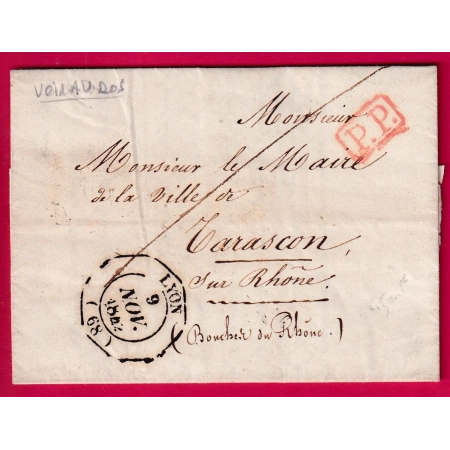 VOIR AU DOS
Monsieur
P.P.
Monsieur le Maire
de la Ville de
Tarascon,
Sur Rhône.
(Bouches du Rhône.)
LYON
9
NOV.
(68)